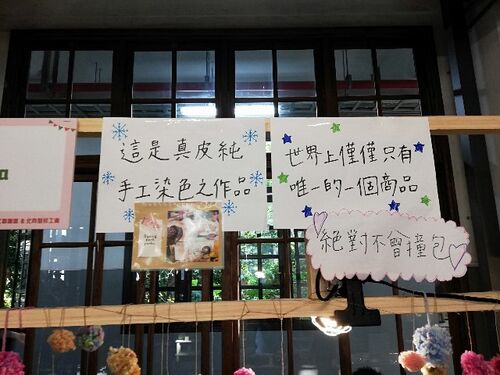 這是真皮純
手工染色之作品
世界上僅僅只有
唯一的一個商品
絕對不會撞包